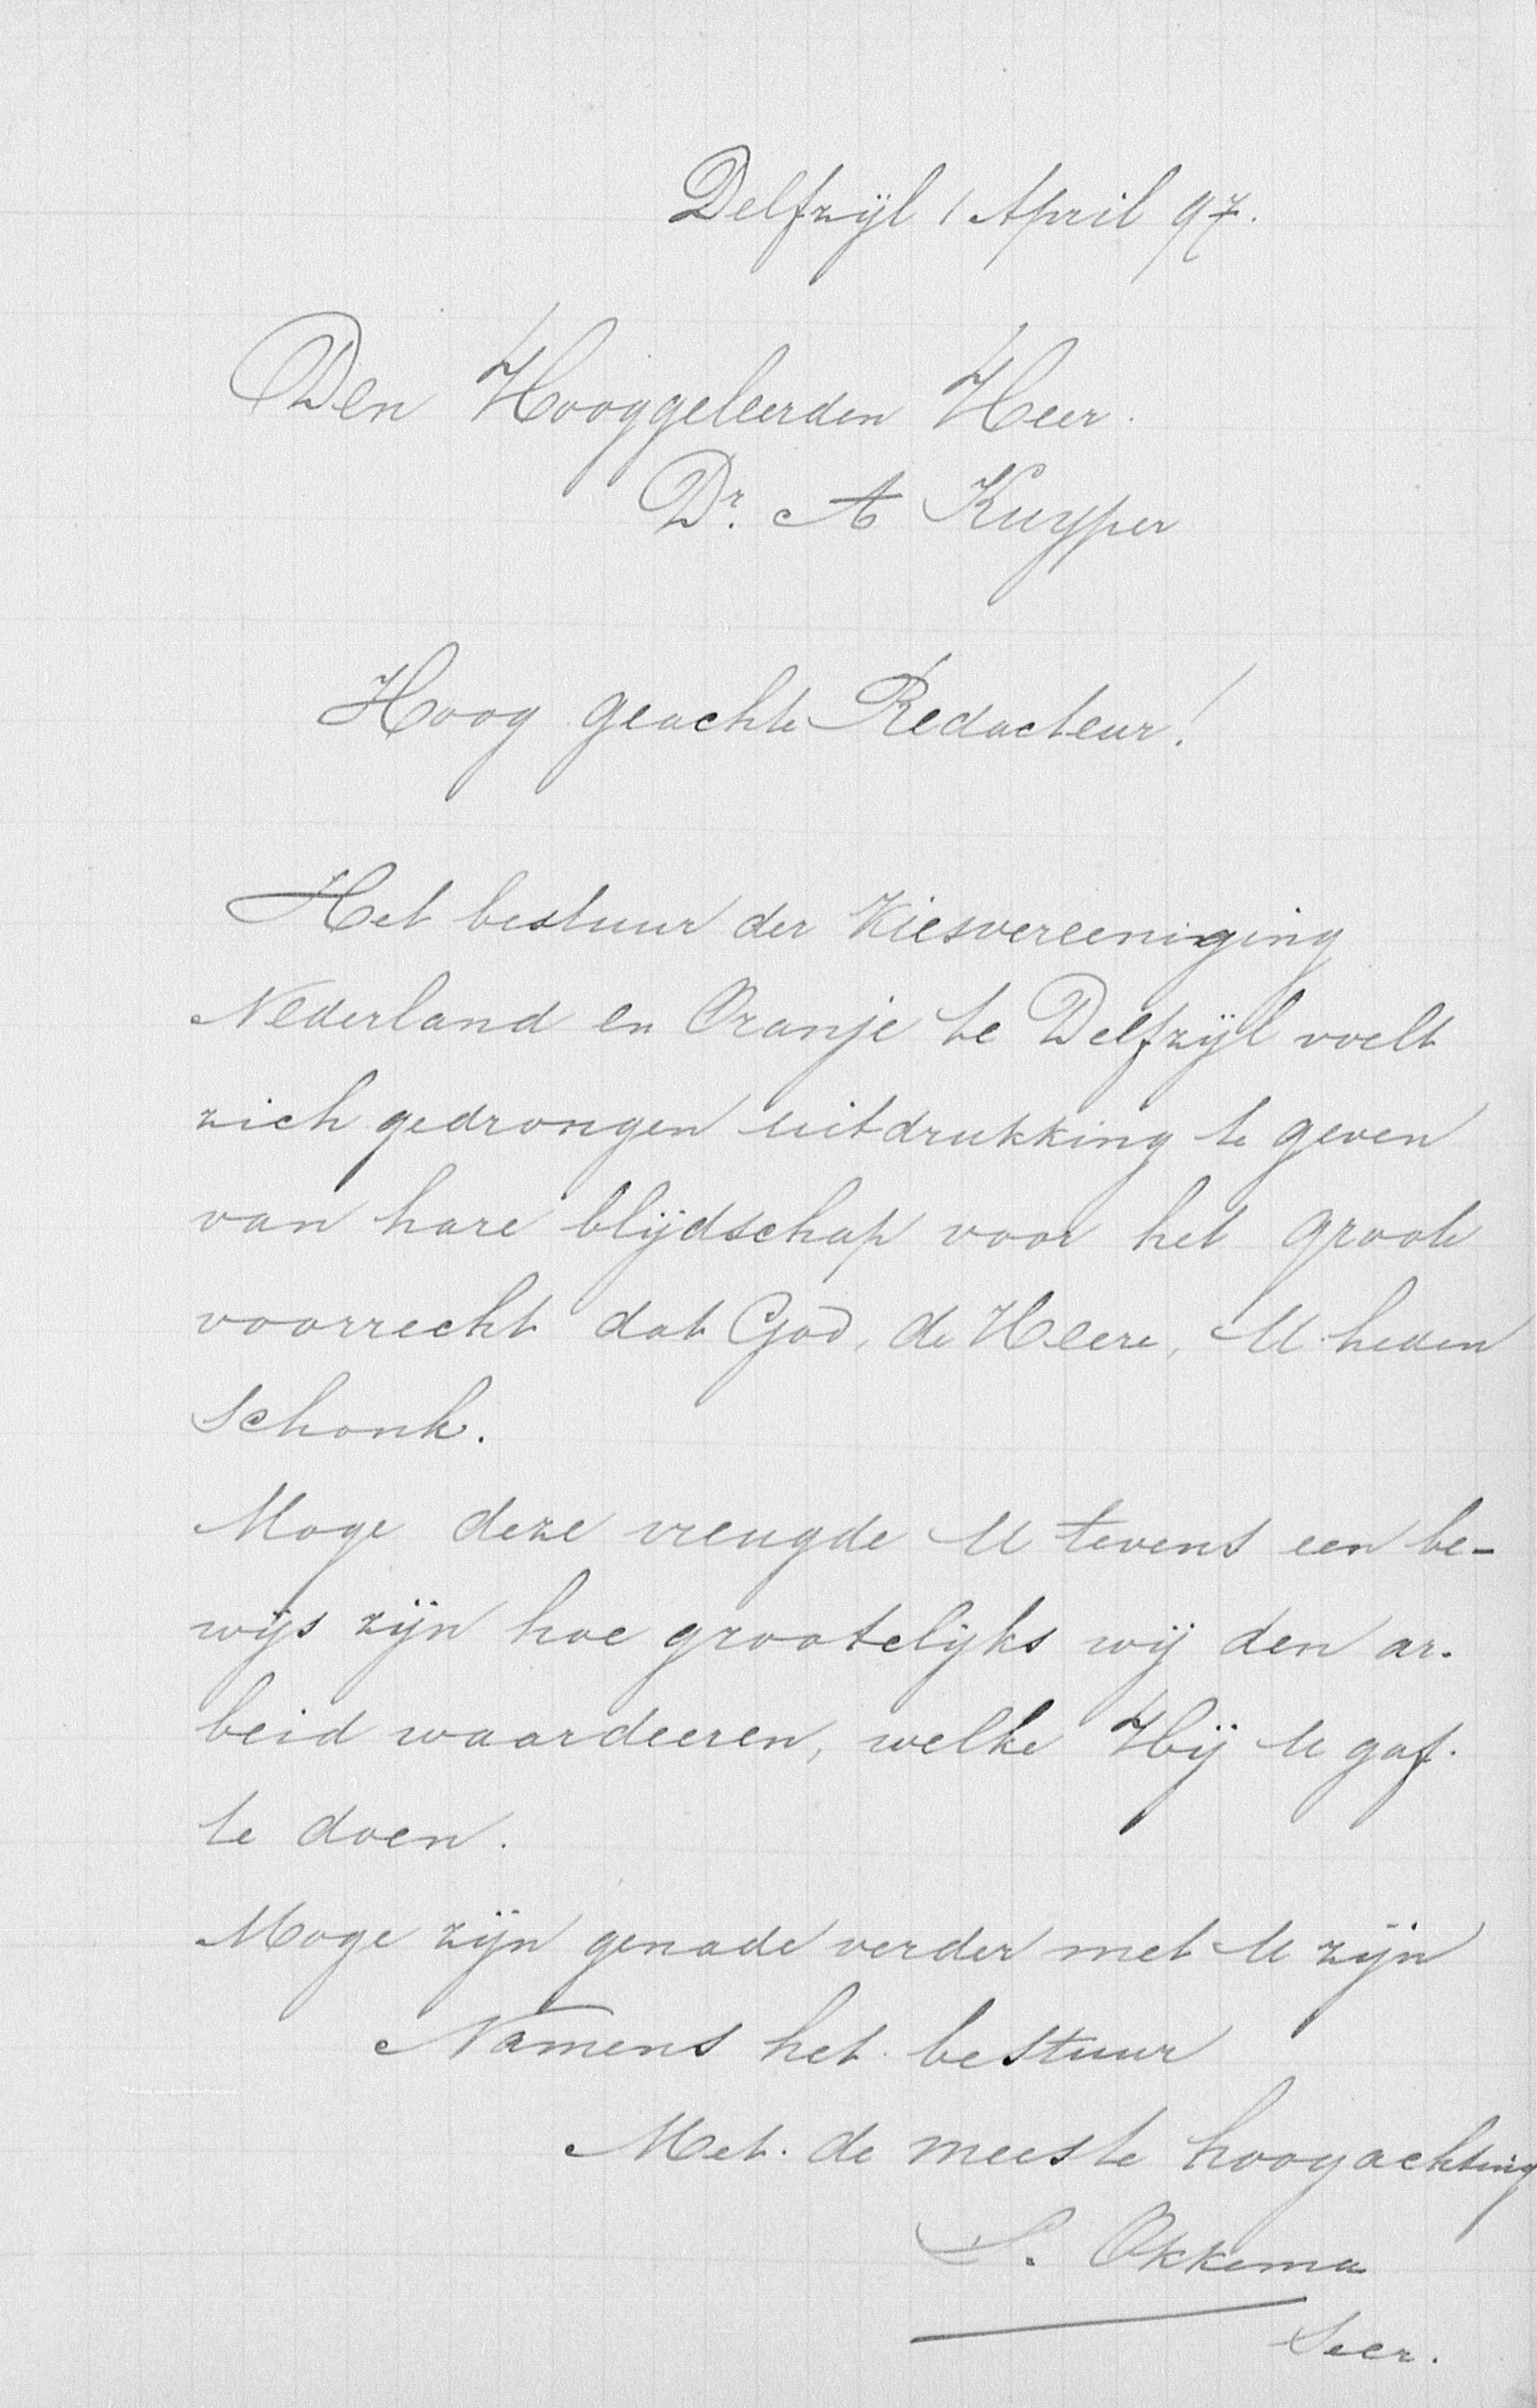 Delfzijl 1 April 97.
Den Hooggeleerden Heer.
Dr. A Kuyper
Hoog geachte Redacteur!
Het bestuur der Kiesvereeniging
Nederland en Oranje te Delfzijl voelt
zich gedrongen uitdrukking te geven
van hare blijdschap voor het groote
voorrecht dat God, de Heere, U heden
schonk.
Moge deze vreugde U tevens een be-
wijs zijn hoe grootelijks wij den ar-
beid waardeeren, welke Hij U gaf
te doen.
Moge zijn genade verder met U zijn
Namens het bestuur
Met de meeste hoogachting
S. Okkema
Secr.